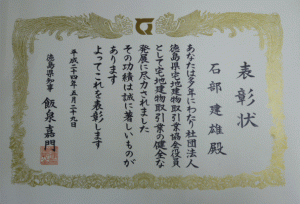 表彰状
石部建雄殿
あなたは多年にわたり社団法人
徳島県宅地建物取引業協会役員
として宅地建物取引業の健全な
発展に尽力されました
その功績は誠に著しいものが
あります
よってこれを表彰します
平成二十四年五月二十九日
徳島県知事 飯泉嘉門